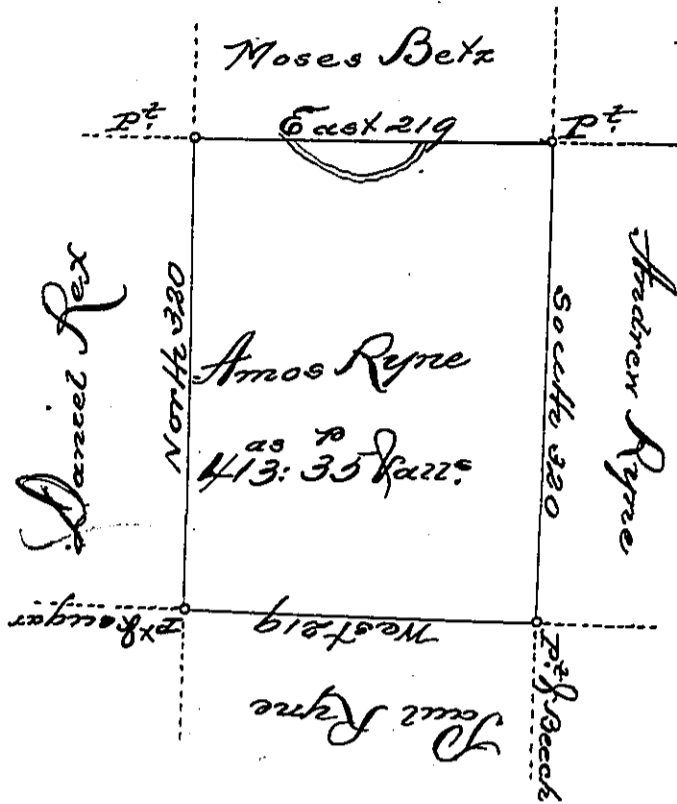 Moses Betz
Pt.
East 219
Pt.
Daniel Rex
North 320
Amos Ryne
as ps
413: 35
South 320
Andrew Ryne
Sugar
West 219
Beech
Paul Ryne